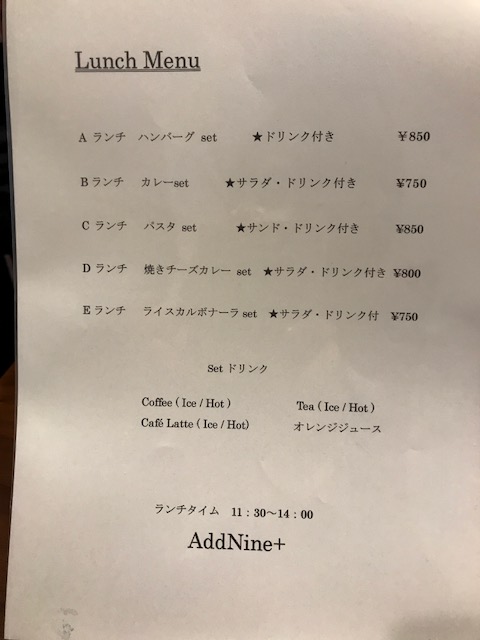 Lunch Menu
A ランチ ハンバーグ set ★ドリンク付き ¥850
B ランチ カレーset ★サラダ・ドリンク付き ¥750
C ランチ パスタ set ★サンド・ドリンク付き ¥850
D ランチ 焼きチーズカレー set ★サラダ・ドリンク付き ¥800
E ランチ ライスカルボナーラ set ★サラダ・ドリンク付 ¥750
Set ドリンク
Coffee ( Ice / Hot ) Tea ( Ice / Hot )
Café Latte ( Ice / Hot) オレンジジュース
ランチタイム 11：30～14：00
AddNine+